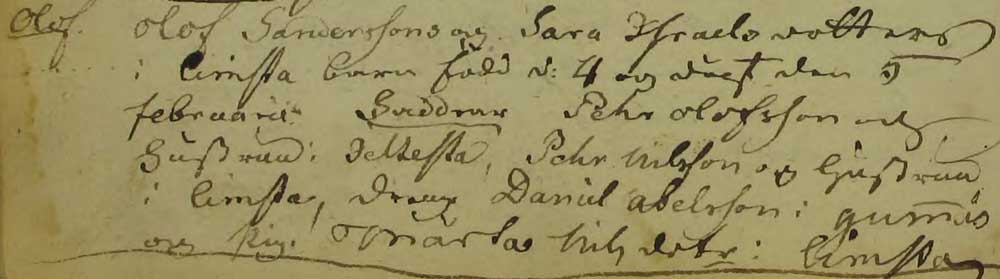 Olof. Olof Sanderssons og Sara Israels dotters
i Limsta barn född d: 4 og döpt den 5
februarii. Faddrar Pehr olofsson och
Hustrun i Jeltesta, Pehr Nilsson og Hustrun
i Limsta, dreng Daniel abelsson i gumås
og Pig. Marta Nils dotr i Limsta